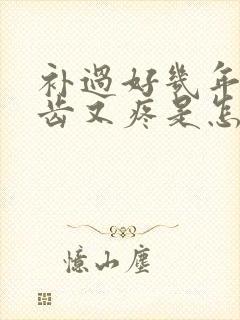 补过好几年
齿又疼是怎
憶山塵